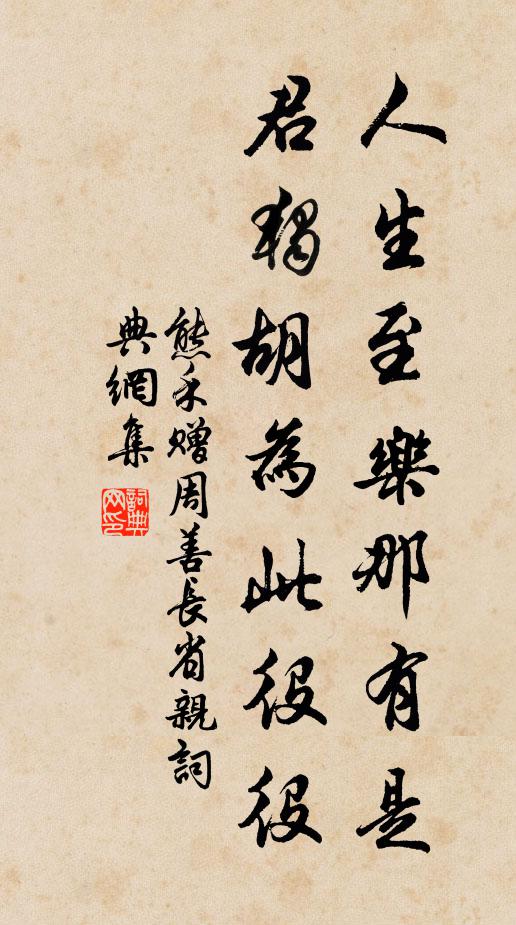 人生至樂那有是
君獨胡為此役役
熊禾贈周善長省親詞
典網集
詞典網印